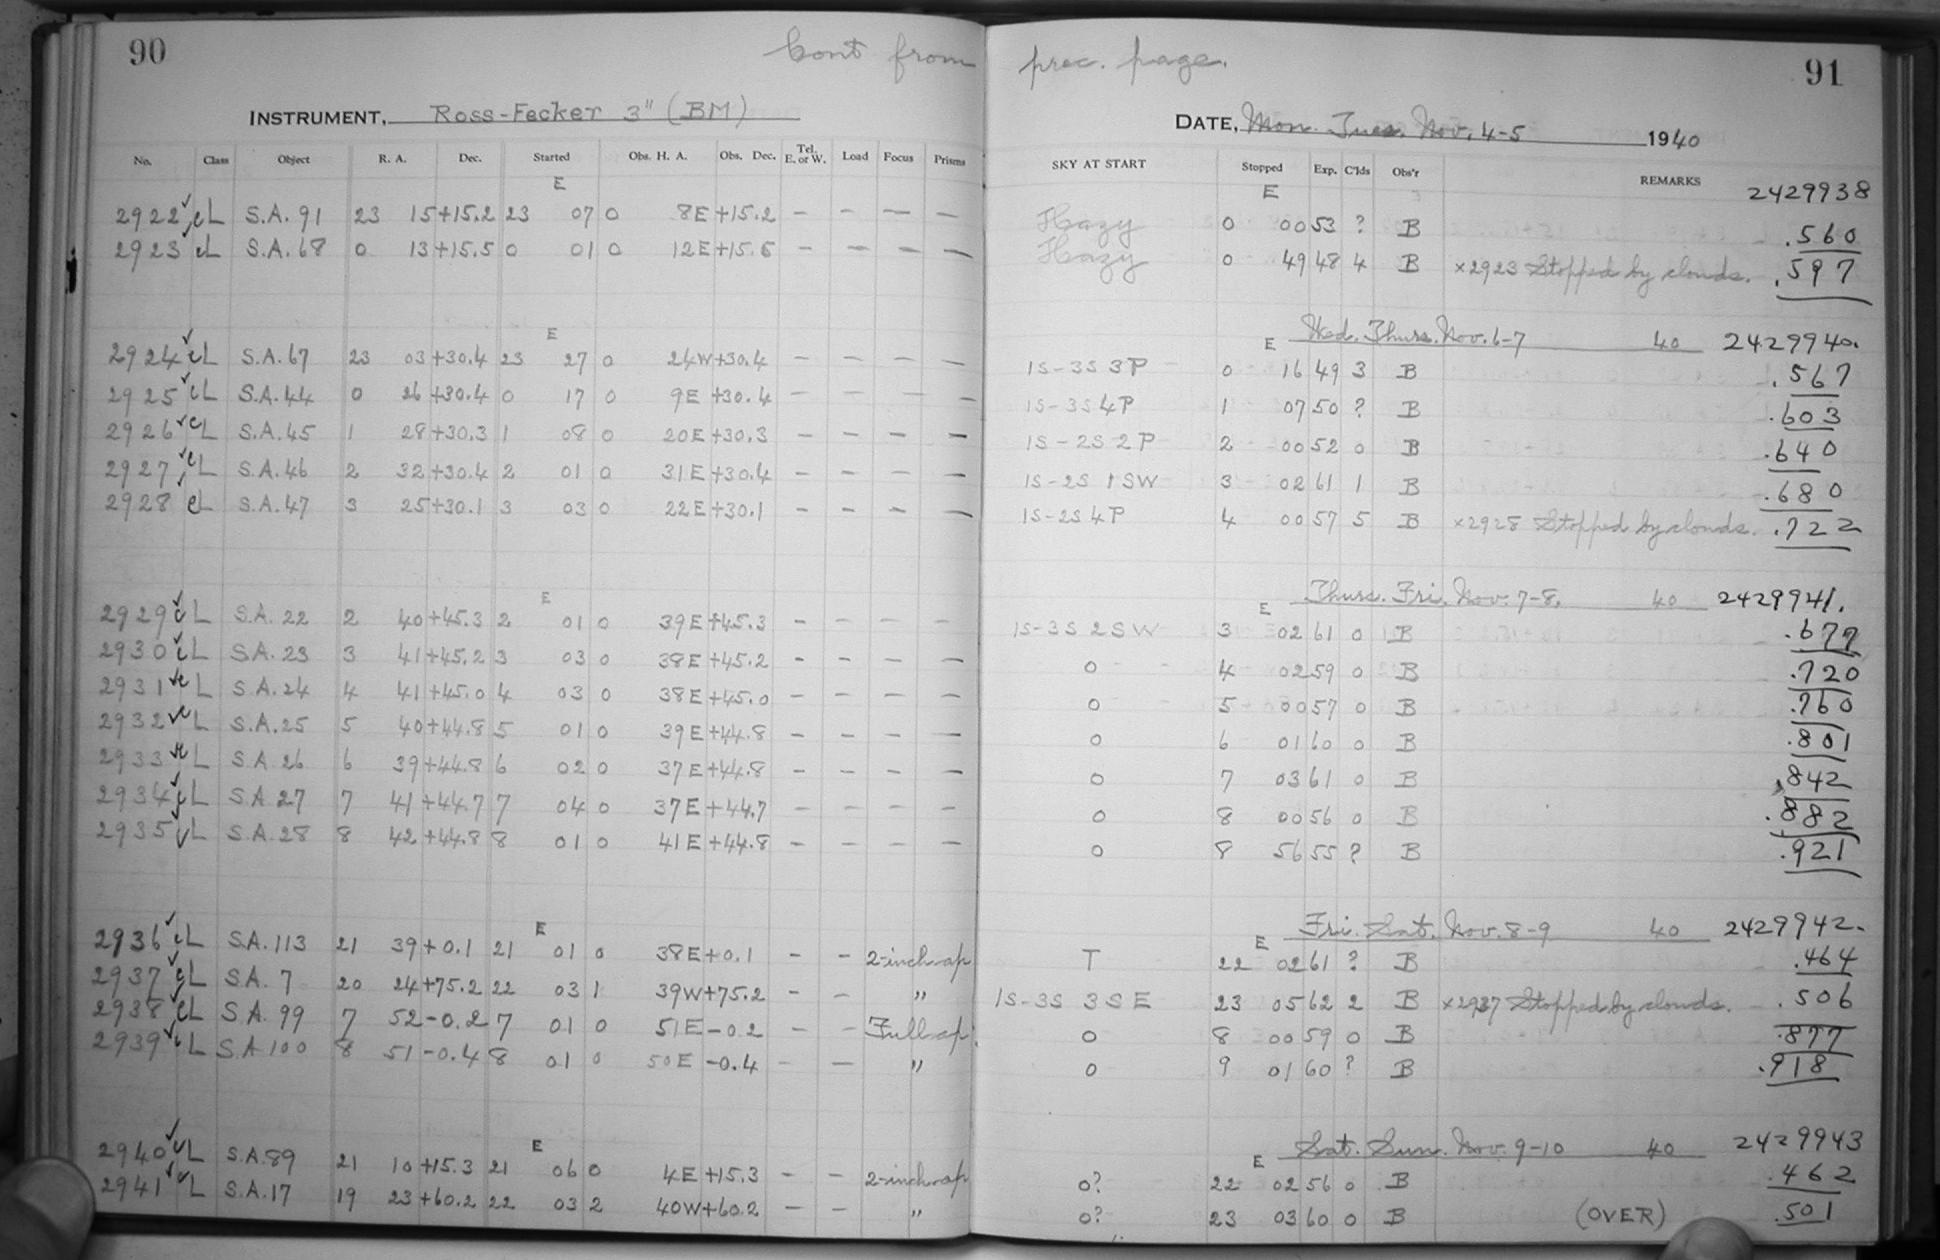 90
Cont from prec. page.
91
INSTRUMENT, Ross-Fecker 3" (BM)
DATE, Mon. Tues. Nov. 4-5 1940
No. Class Object R. A. Dec. Started Obs. H. A. Obs. Dec. Tel. E. or W. Load Focus Prisms SKY AT START Stopped Exp. C'lds Obs'r REMARKS
E E 2429938
2922 ✓ cL S.A. 91 23 15 +15.2 23 07 0 8E +15.2 - - - - Hazy 0 00 53 ? B .560
2923 cL S.A. 68 0 13 +15.5 0 01 0 12E +15.6 - - - - Hazy 0 49 48 4 B ×2923 Stopped by clouds. .597
E E Wed. Thurs. Nov. 6-7 40 2429940.
2924 ✓ cL S.A. 67 23 03 +30.4 23 27 0 24W +30.4 - - - - 1S-3S 3P 0 16 49 3 B .567
2925 ✓ cL S.A. 44 0 26 +30.4 0 17 0 9E +30.4 - - - - 1S-3S 4P 1 07 50 ? B .603
2926 ✓ cL S.A. 45 1 28 +30.3 1 08 0 20E +30.3 - - - - 1S-2S 2P 2 00 52 0 B .640
2927 ✓ cL S.A. 46 2 32 +30.4 2 01 0 31E +30.4 - - - - 1S-2S 1SW 3 02 61 1 B .680
2928 cL S.A. 47 3 25 +30.1 3 03 0 22E +30.1 - - - - 1S-2S 4P 4 00 57 5 B ×2928 Stopped by clouds. .722
E E Thurs. Fri. Nov. 7-8. 40 2429941.
2929 ✓ cL S.A. 22 2 40 +45.3 2 01 0 39E +45.3 - - - - 1S-3S 2SW 3 02 61 0 B .677
2930 ✓ cL S.A. 23 3 41 +45.2 3 03 0 38E +45.2 - - - - 0 4 02 59 0 B .720
2931 ✓ cL S.A. 24 4 41 +45.0 4 03 0 38E +45.0 - - - - 0 5 00 57 0 B .760
2932 ✓ cL S.A. 25 5 40 +44.8 5 01 0 39E +44.8 - - - - 0 6 01 60 0 B .801
2933 ✓ cL S.A. 26 6 39 +44.8 6 02 0 37E +44.8 - - - - 0 7 03 61 0 B .842
2934 ✓ cL S.A. 27 7 41 +44.7 7 04 0 37E +44.7 - - - - 0 8 00 56 0 B .882
2935 ✓ cL S.A. 28 8 42 +44.8 8 01 0 41E +44.8 - - - - 0 8 56 55 ? B .921
E E Fri. Sat. Nov. 8-9 40 2429942.
2936 ✓ cL S.A. 113 21 39 +0.1 21 01 0 38E +0.1 - - 2-inch ap T 22 02 61 ? B .464
2937 ✓ cL S.A. 7 20 24 +75.2 22 03 1 39W +75.2 - - " 1S-3S 3SE 23 05 62 2 B ×2937 Stopped by clouds. .506
2938 ✓ cL S.A. 99 7 52 -0.2 7 01 0 51E -0.2 - - Full ap. 0 8 00 59 0 B .877
2939 ✓ cL S.A. 100 8 51 -0.4 8 01 0 50E -0.4 - - " 0 9 01 60 ? B .918
E E Sat. Sun. Nov. 9-10 40 2429943
2940 ✓ cL S.A. 89 21 10 +15.3 21 06 0 4E +15.3 - - 2-inch ap 0? 22 02 56 0 B .462
2941 ✓ cL S.A. 17 19 23 +60.2 22 03 2 40W +60.2 - - " 0? 23 03 60 0 B (OVER) .501